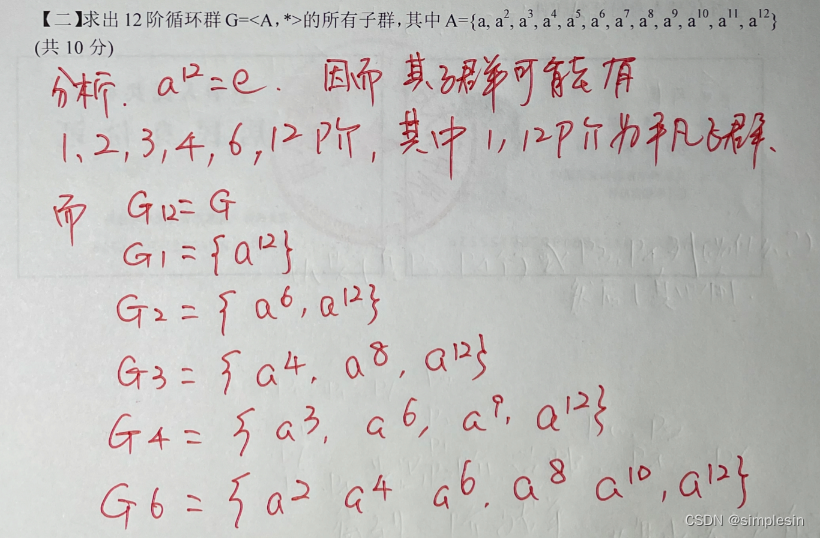 【二】求出12阶循环群G=<A,*>的所有子群,其中A={a, a², a³, a⁴, a⁵, a⁶, a⁷, a⁸, a⁹, a¹⁰, a¹¹, a¹²}
(共 10 分)
分析. a¹²=e. 因而 其子群单可能有
1、2, 3, 4, 6, 12阶, 其中 1, 12阶为平凡子群、
而 G₁₂=G
G₁ = {a¹²}
G₂ = { a⁶, a¹²}
G₃ = { a⁴, a⁸, a¹²}
G₄ = { a³, a⁶, a⁹, a¹²}
G₆ = { a² a⁴ a⁶. a⁸ a¹⁰, a¹²}
CSDN @simplesin